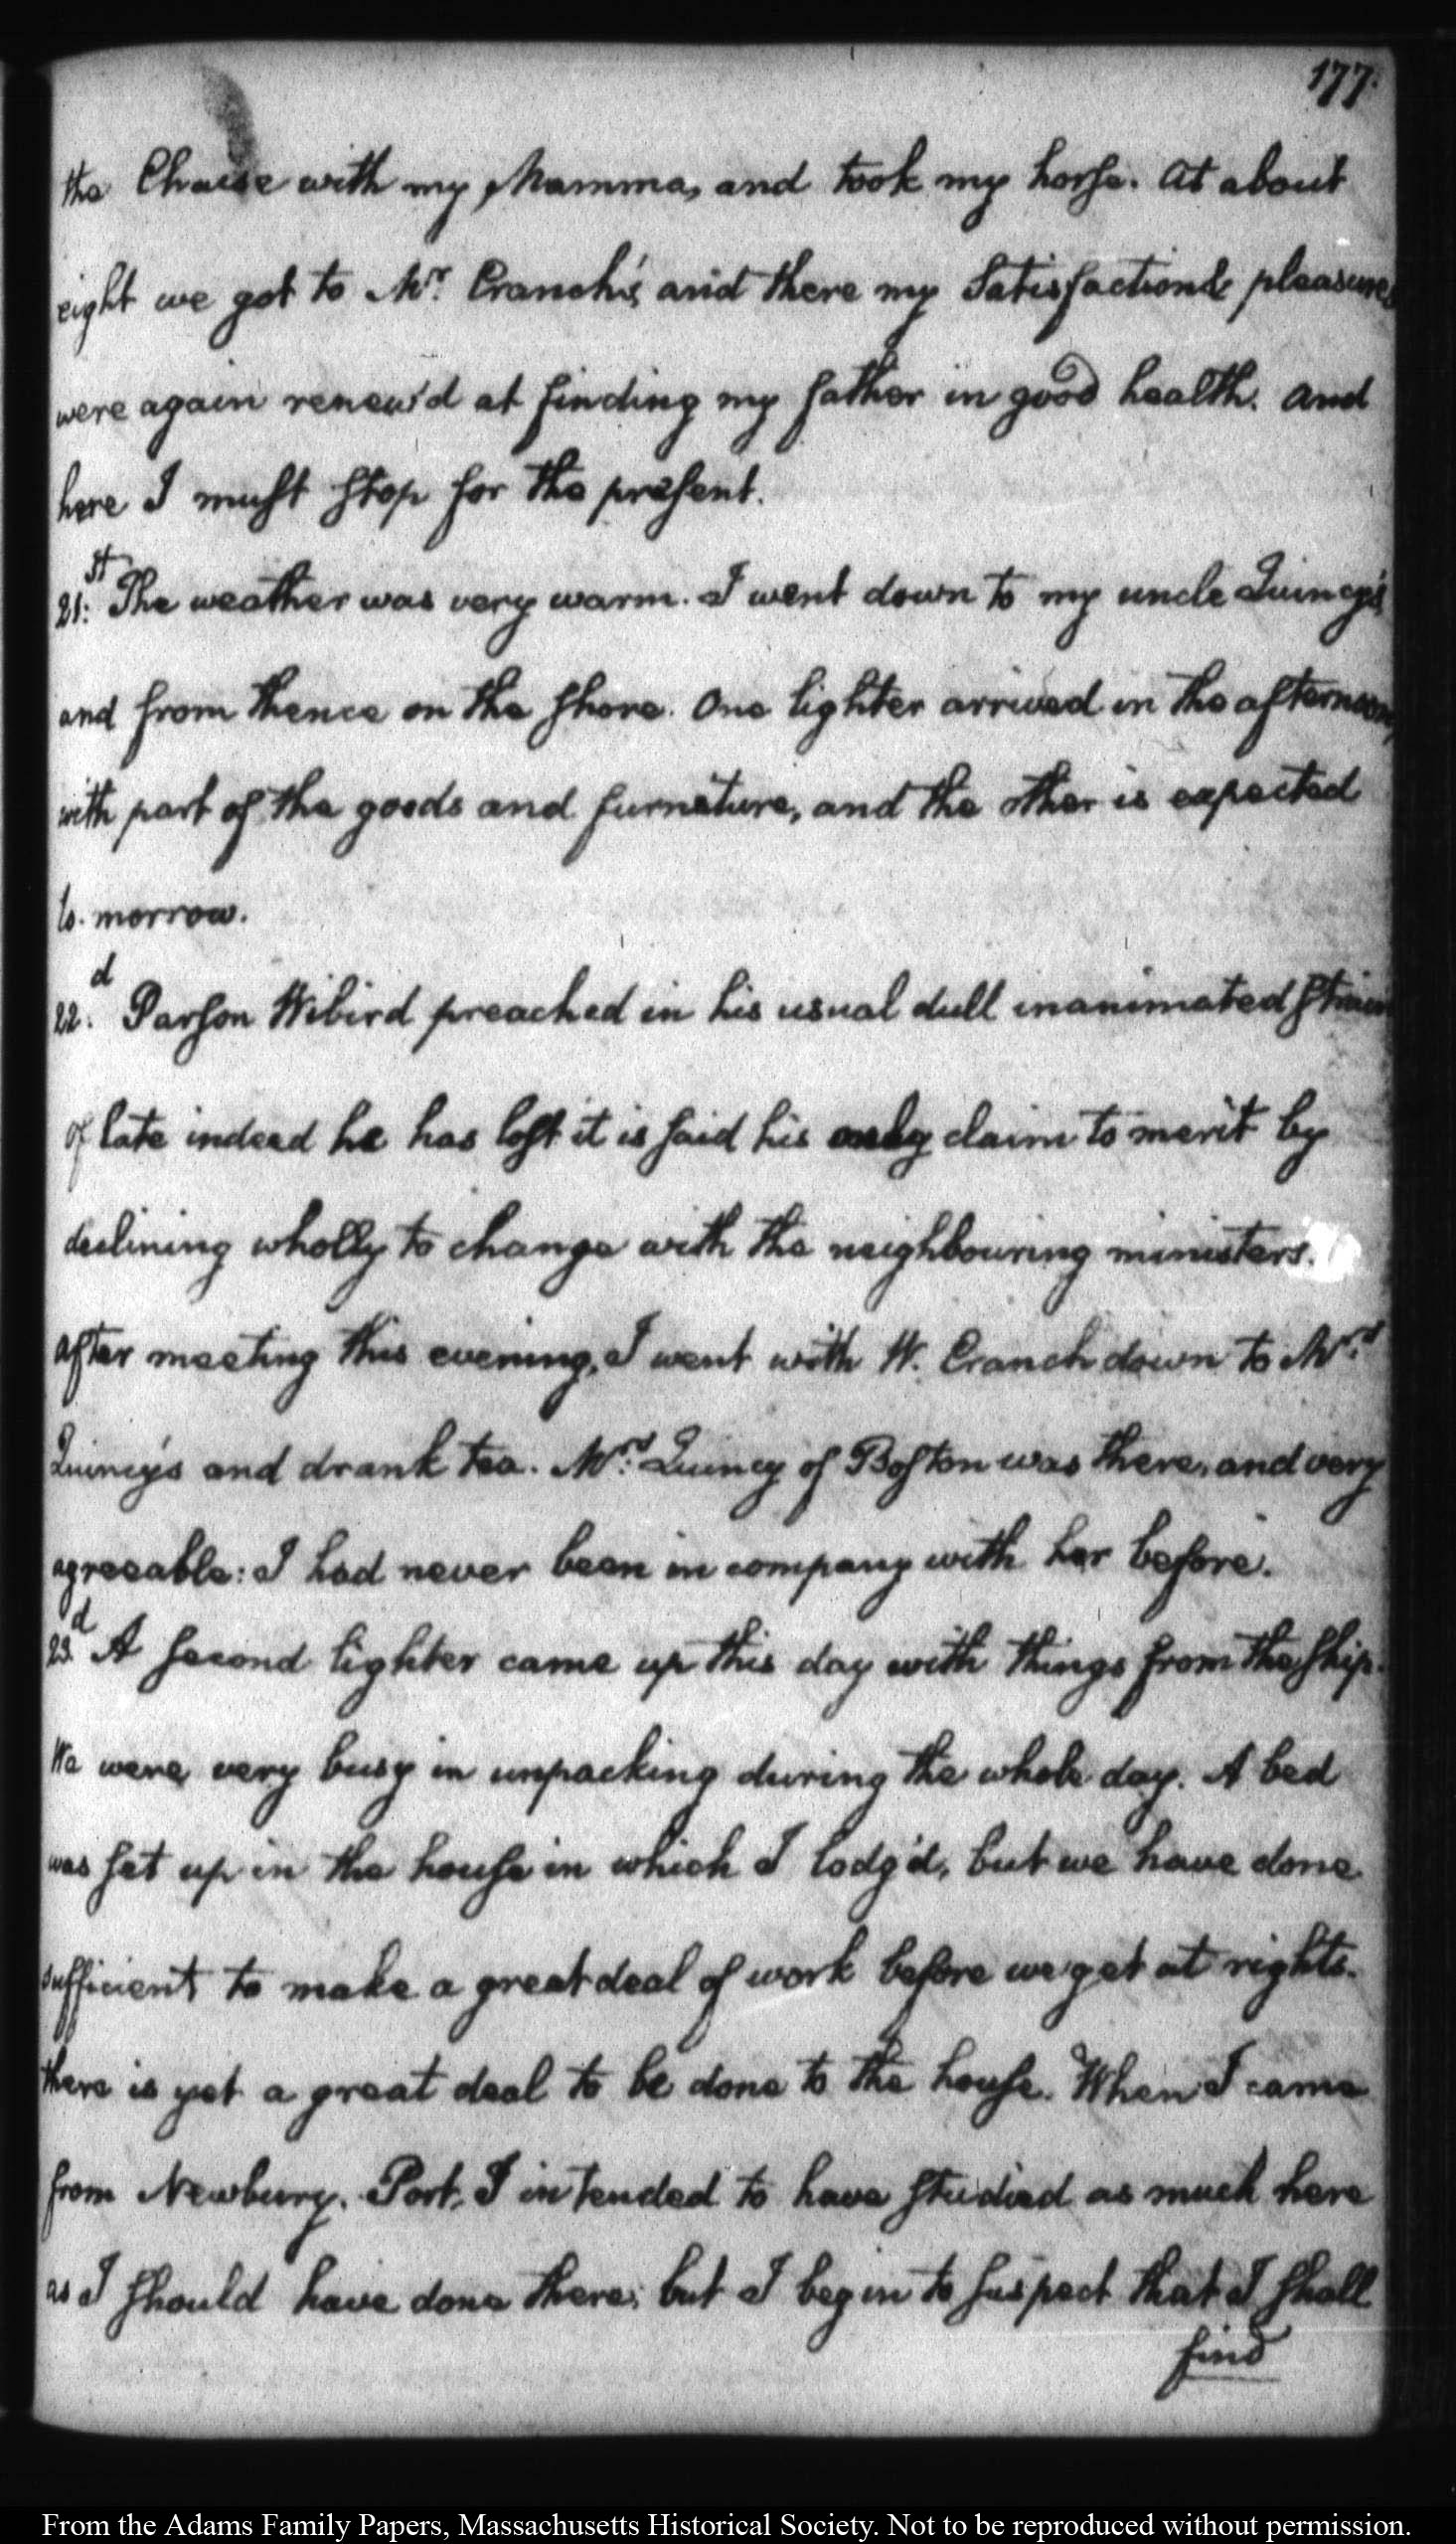 177.
the Chaise with my Mamma, and took my horse. At about
eight we got to Mr. Cranch's, and there my Satisfaction & pleasures
were again renew'd at finding my father in good health. And
here I must stop for the present.
21st: The weather was very warm. I went down to my uncle Quincy's
and from thence on the shore. One lighter arrived in the afternoon,
with part of the goods and furniture, and the other is expected
to-morrow.
22d. Parson Wibird preached in his usual dull inanimated strain
of late indeed he has lost it is said his only claim to merit by
declining wholly to change with the neighbouring ministers.
after meeting this evening, I went with W. Cranch down to Mrs.
Quincy's and drank tea. Mrs. Quincy of Boston was there, and very
agreeable: I had never been in company with her before.
23d. A second lighter came up this day with things from the ship.
We were very busy in unpacking during the whole day. A bed
was set up in the house in which I lodg'd, but we have done
sufficient to make a great deal of work before we get at rights.
there is yet a great deal to be done to the house. When I came
from Newbury-Port, I intended to have studied as much here
as I should have done there; but I begin to suspect that I shall
find
From the Adams Family Papers, Massachusetts Historical Society. Not to be reproduced without permission.